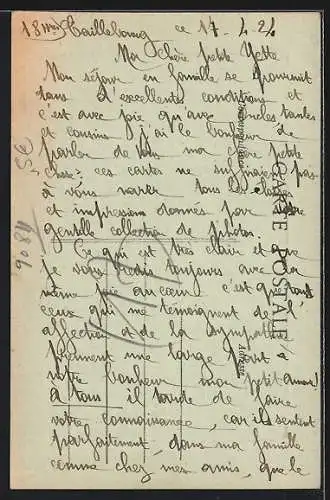 Taillebourg ce 17. 4. 24
Ma chère petite Yette
Mon séjour en famille se poursuit
dans d'excellentes conditions et
c'est avec joie qu'avec oncles, tantes
et cousins j'ai le bonheur de
parler de vous ma chère petite
chose; ces cartes ne suffiraient pas
à vous narrer tous les
et impressions données par votre
gentille collection de photos.
Ce qui est très clair et que
je vous redis toujours avec la
même joie au cœur c'est que tous
ceux qui me témoignent de l'
affection et de la sympathie
prennent une large part à
notre bonheur mon petit amour!
à tous il tarde de faire
votre connaissance, car ils sentent
parfaitement, dans ma famille
comme chez mes amis, que le
CARTE POSTALE
Correspondance
Adresse
9084